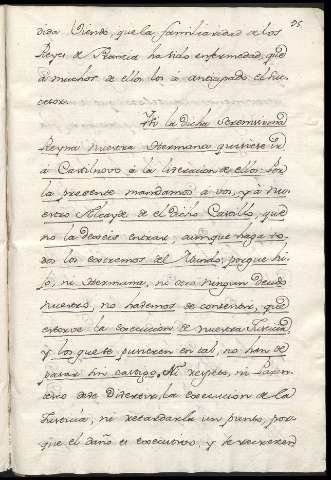 95
dida. Viendo, que la familiaridad de los
Reyes de Francia ha sido enfermedad, que
à muchos de ellos los à anticipado el suc-
cesor.
Y si la dicha Serenissima
Reyna nuestra Hermana quisiese ir
à Castilnovo à la liberacion de ellos: Por
la presente mandamos à vos, y à nu-
estro Alcayde de el dicho Castillo, que
no la dexeis entrar, aunque haga to-
dos los extremos del Mundo, porque hi-
jo, ni Hermana, ni otro ningun Deudo
nuestro, no habemos de consentir, que
estorve la execucion de nuestra Justicia,
y los que se pusieren en tal, no han de
pasar sin castigo. Ni respeto, ni
debe Diferir, la execucion de la
Justicia, ni retardarla un punto, por-
que el daño es executivo, y se